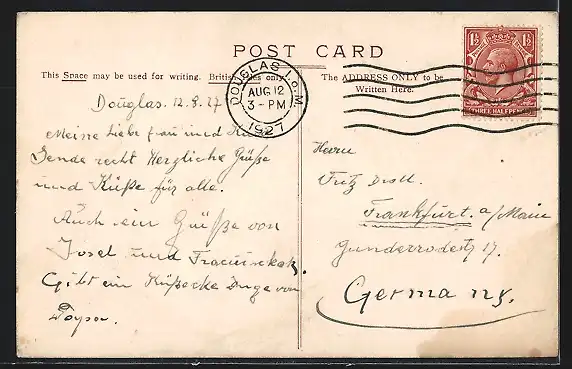 POST CARD
This Space may be used for writing. British Isles only.
The ADDRESS ONLY to be
Written Here.
1½ 1½
THREE HALFPENCE
DOUGLAS I. of M.
AUG 12
3 - PM
1927
Douglas. 12.8.27
Meine Liebe Frau und
Sende recht Herzliche Grüße
und Küße für alle.
Auch ein Grüße von
Josef und
Gibt ein von
Herrn
Fritz
Frankfurt a/Main
Gunderrodestr 17.
Germany.